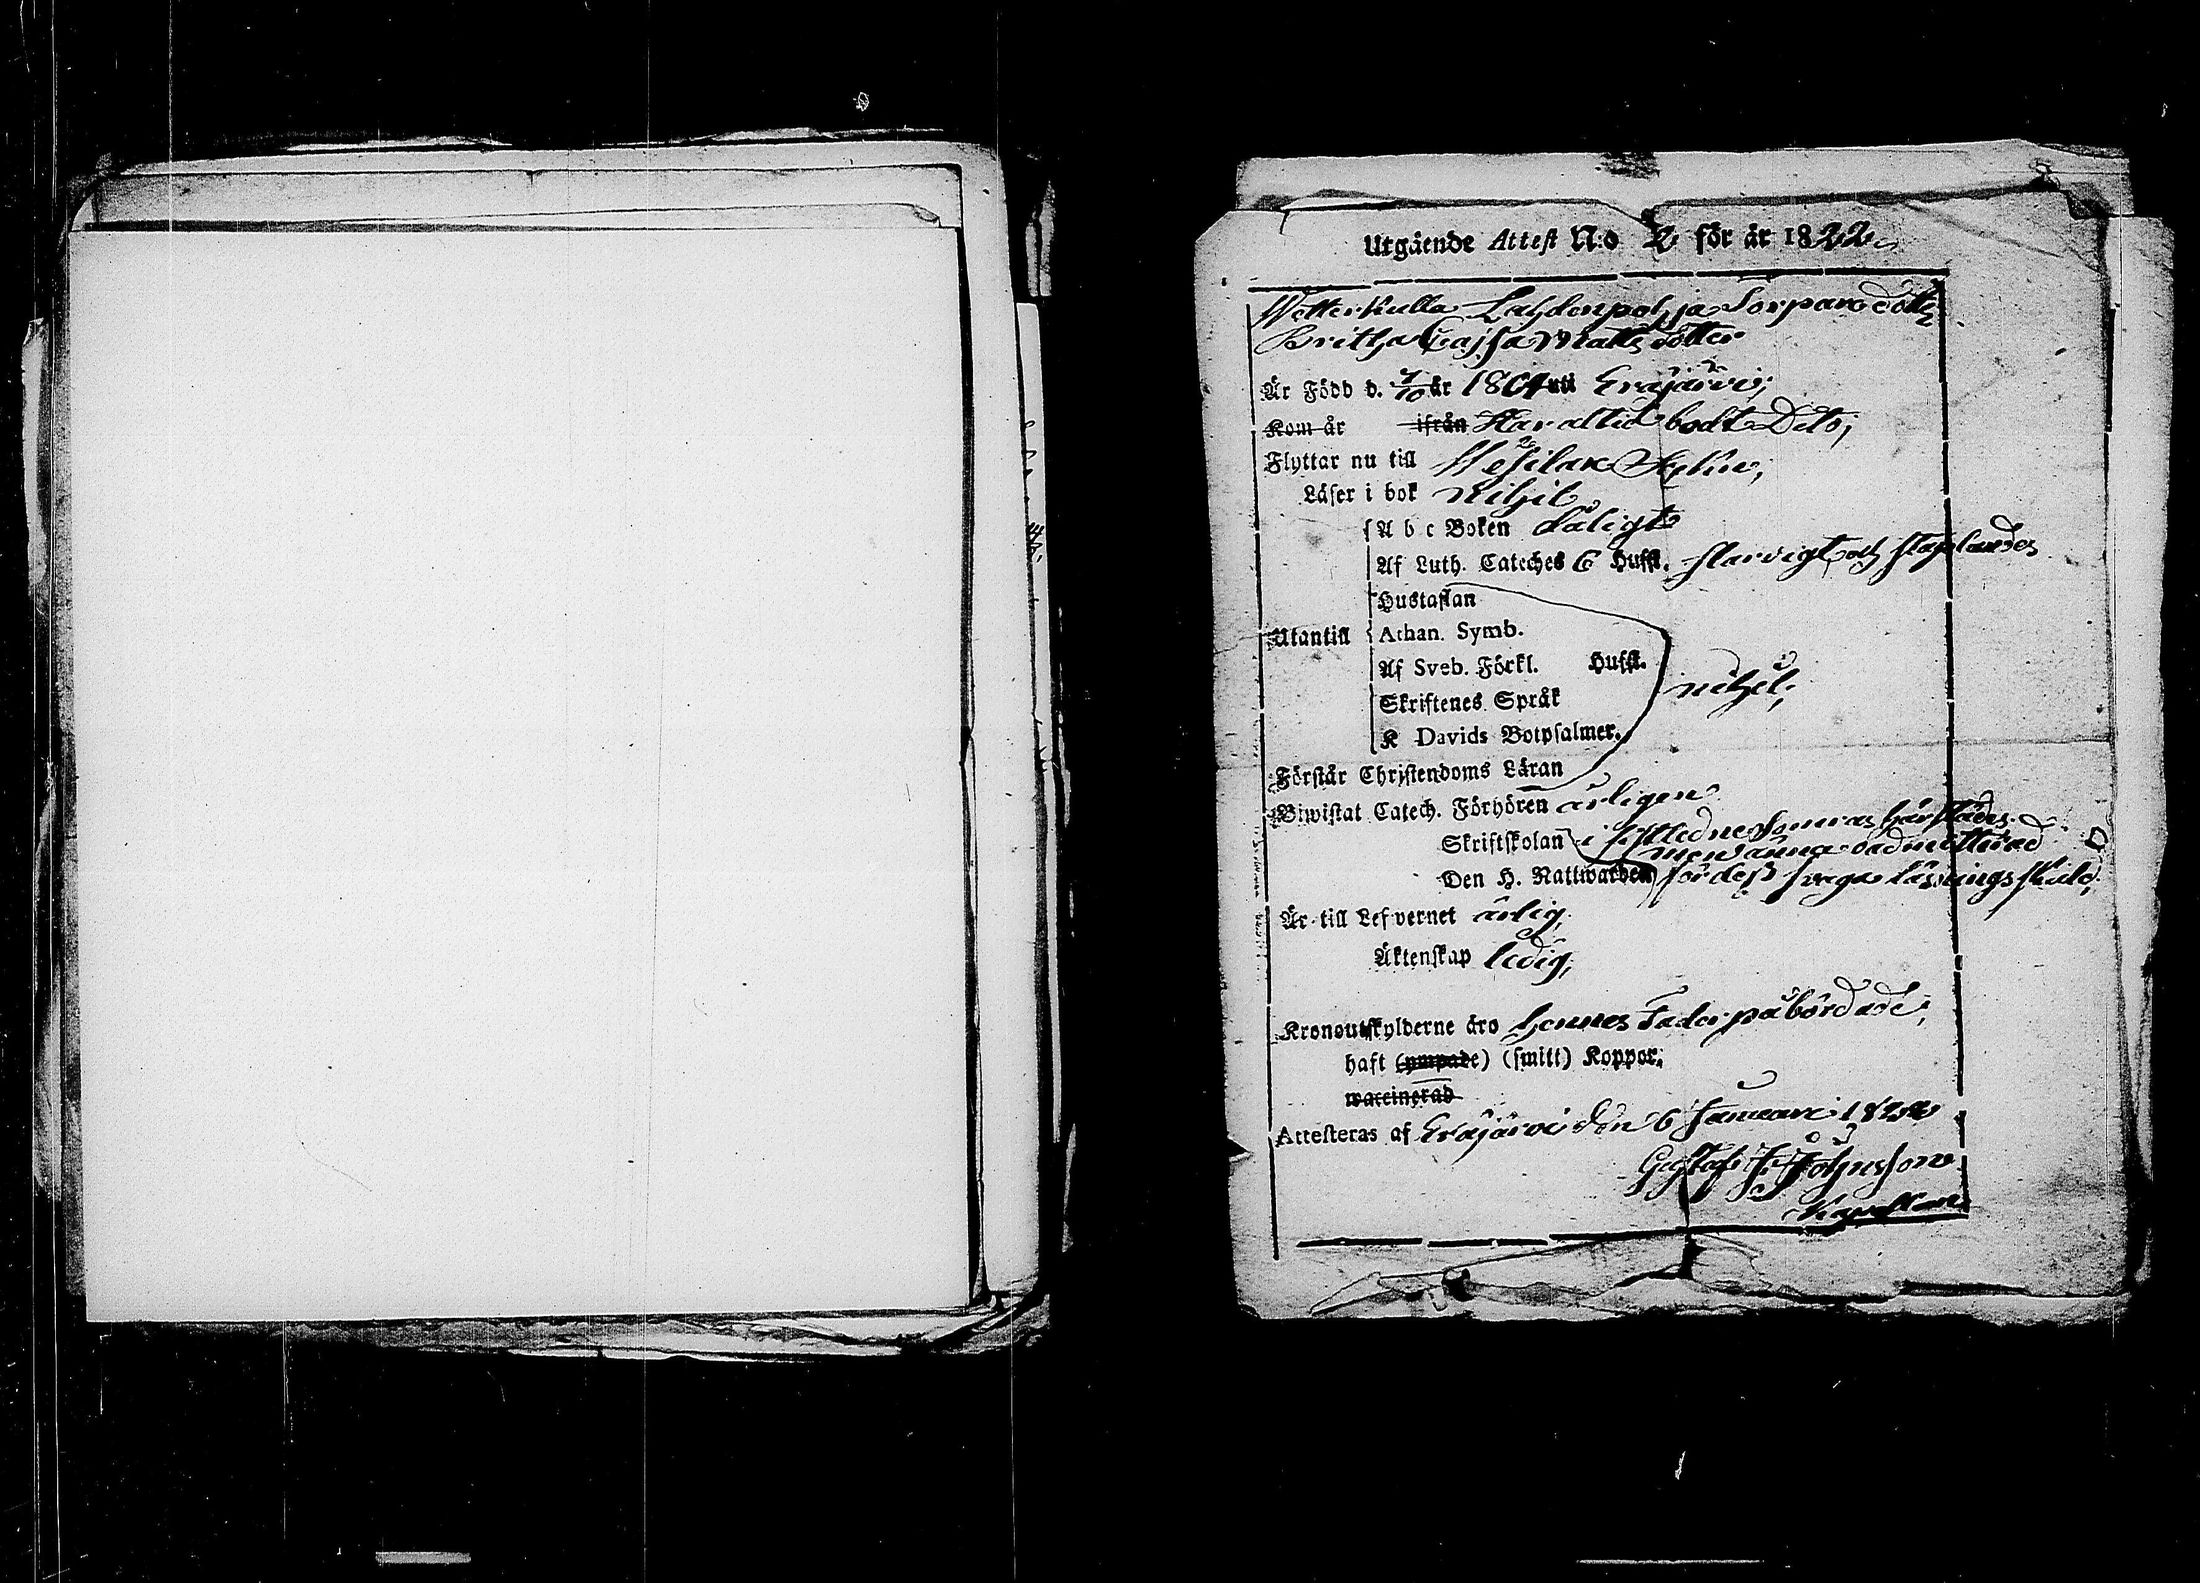 Utgående Attest N:o 2 för år 1822
Wetterkulla Lahdenpohja Torparedottr
Britha Cajsa Mattsdotter
Är Född d. 7/10 år 1804 uti Eräjärvi,
Kom år ifrån Har altid bodt Dito,
Flyttar nu till Wesilax Sokn,
Läser i bok nihil
A b c Boken dåligt
Af Luth. Cateches 6 Huffst. slarvigt och staplandes
Hustaflan
Utantill Athan. Symb.
Af Sveb. Förkl. Huffst.
nihil,
Skriftenes Språk
K Davids Botpsalmer.
Förstår Christendoms Läran
Biwistat Catech. Förhören årligen
Skriftskolan i sistledne sommar härstädes
men ännu oadmitterad
Den H. Nattwarden för dess svaga läsnings skuld,
Är till Lefvernet ärlig,
Äktenskap ledig,
Kronoutskylderne äro hennes Fader påbördade,
haft (ympade) (smitt) Koppor.
waccinerad
Attesteras af Eräjärvi den 6 Januari 1822
Gustaf F: Johnsson
Kapellan